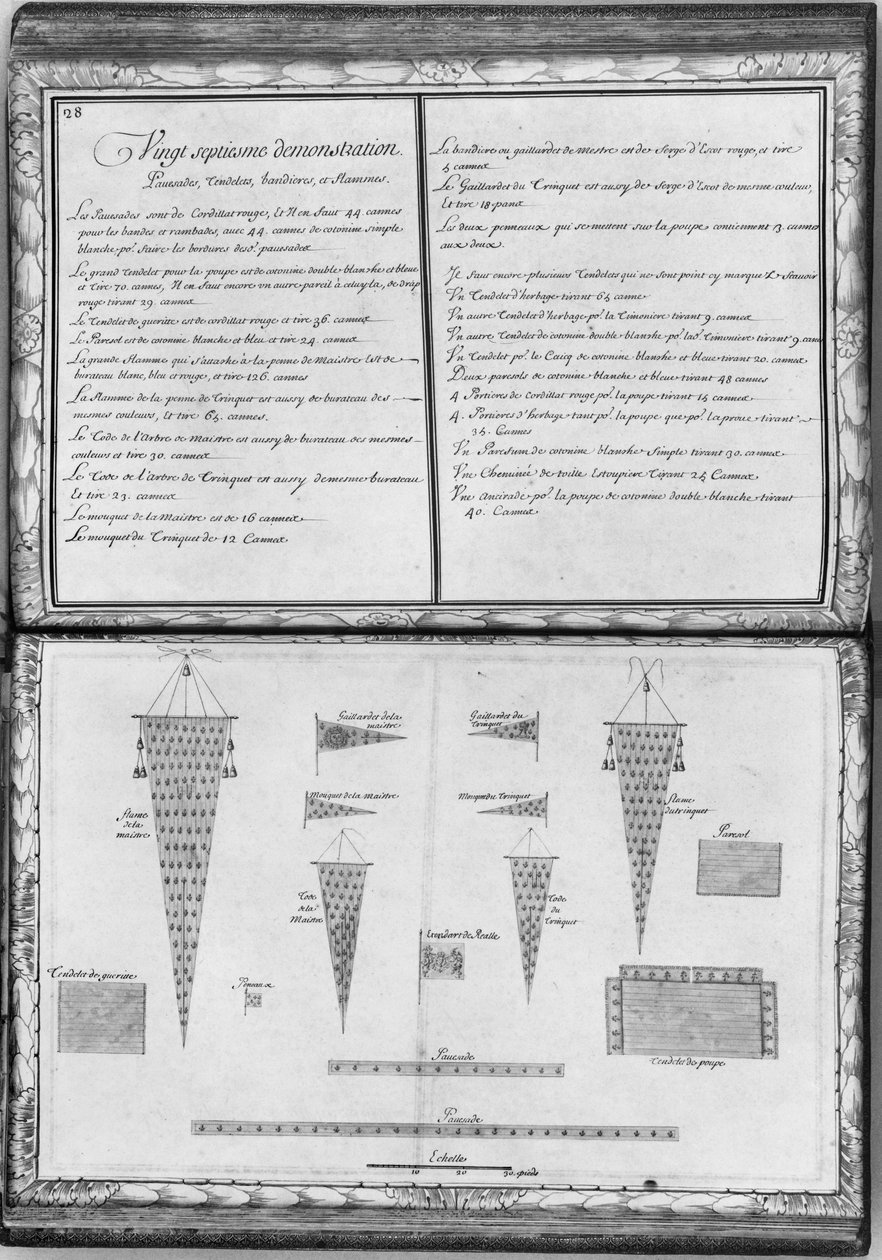 28
Vingt septiesme demonstration.
Pauesades, Tendelets, bandieres, et flammes.
Les Pauesades sont de Cordillat rouge, Et Il en faut 44. cannes
pour les bandes et rambades, auec 44. cannes de cotonine simple
blanche po.^r faire les bordures desd.^s pauesades
Le grand Tendelet pour la poupe est de cotonine double blanche et bleue
et Tire 70. cannes, Il en faut encore vn autre pareil a celuy la, de drap
rouge tirant 29. cannes
Le Tendelet de gueritte est de cordillat rouge et tire 36. cannes
Le Paresol est de cotonine blanche et bleu et tire 24. cannes
La grande flamme qui s'attache a la penne de Maistre Est de
burateau blanc, bleu et rouge, et tire 126. cannes
La flamme de la penne de Trinquet est aussy de burateau des
mesmes couleurs, Et tire 65. cannes.
Le Tode de l'Arbre de Maistre est aussy de burateau des mesmes
couleurs et tire 30. cannes
Le Tode de l'arbre de Trinquet est aussy de mesme burateau
Et tire 23. cannes
Le mouquet de la Maistre est de 16 cannes
Le mouquet du Trinquet de 12 Cannes
La bandiere ou gaillardet de Mestre est de Serge d'Escot rouge, et tire
5 cannes
Le Gaillardet du Trinquet est aussy de Serge d'Escot de mesme couleur,
Et tire 18. pans
Les deux penneaux qui se mettent sur la poupe contiennent 13. cannes
aux deux.
Il faut encore plusieurs Tendelets qui ne sont point cy marque Z Scauoir
Vn Tendelet d'herbage tirant 65 canne
Vn autre Tendelet d'herbage po.^r la Timoniere tirant 9. cannes
Vn autre Tendelet de cotonine double blanche po.^r lad.^e Timoniere tirant 9. can
Vn Tendelet po.^r le Caicq de cotonine blanche et bleue tirant 20. cannes
Deux paresols de cotonine blanche et bleue tirant 48 cannes
4 Portieres de Cordillat rouge po.^r la poupe tirant 15 cannes
4. Portieres d'herbage tant po.^r la poupe que po.^r la proue tirant
35. Cannes
Vn Paresum de cotonine blanche Simple tirant 30. cannes
Vne Cheminée de toille Estoupiere Tirant 25 Cannes
Vne ancirade po.^r la poupe de cotonine double blanche tirant
40. Cannes
Gaillardet de la
maistre
Gaillardet du
Trinquet
flame
de la
maistre
Mouquet de la maistre
Mouquet du Trinquet
flame
du trinquet
Paresol
Tode
de la
Maistre
Tode
du
Trinquet
Etendart de Realle
Tendelet de gueritte
Peneaux
Tendelet de poupe
Pauesade
Pauesade
Echelle
10 20 30. pieds